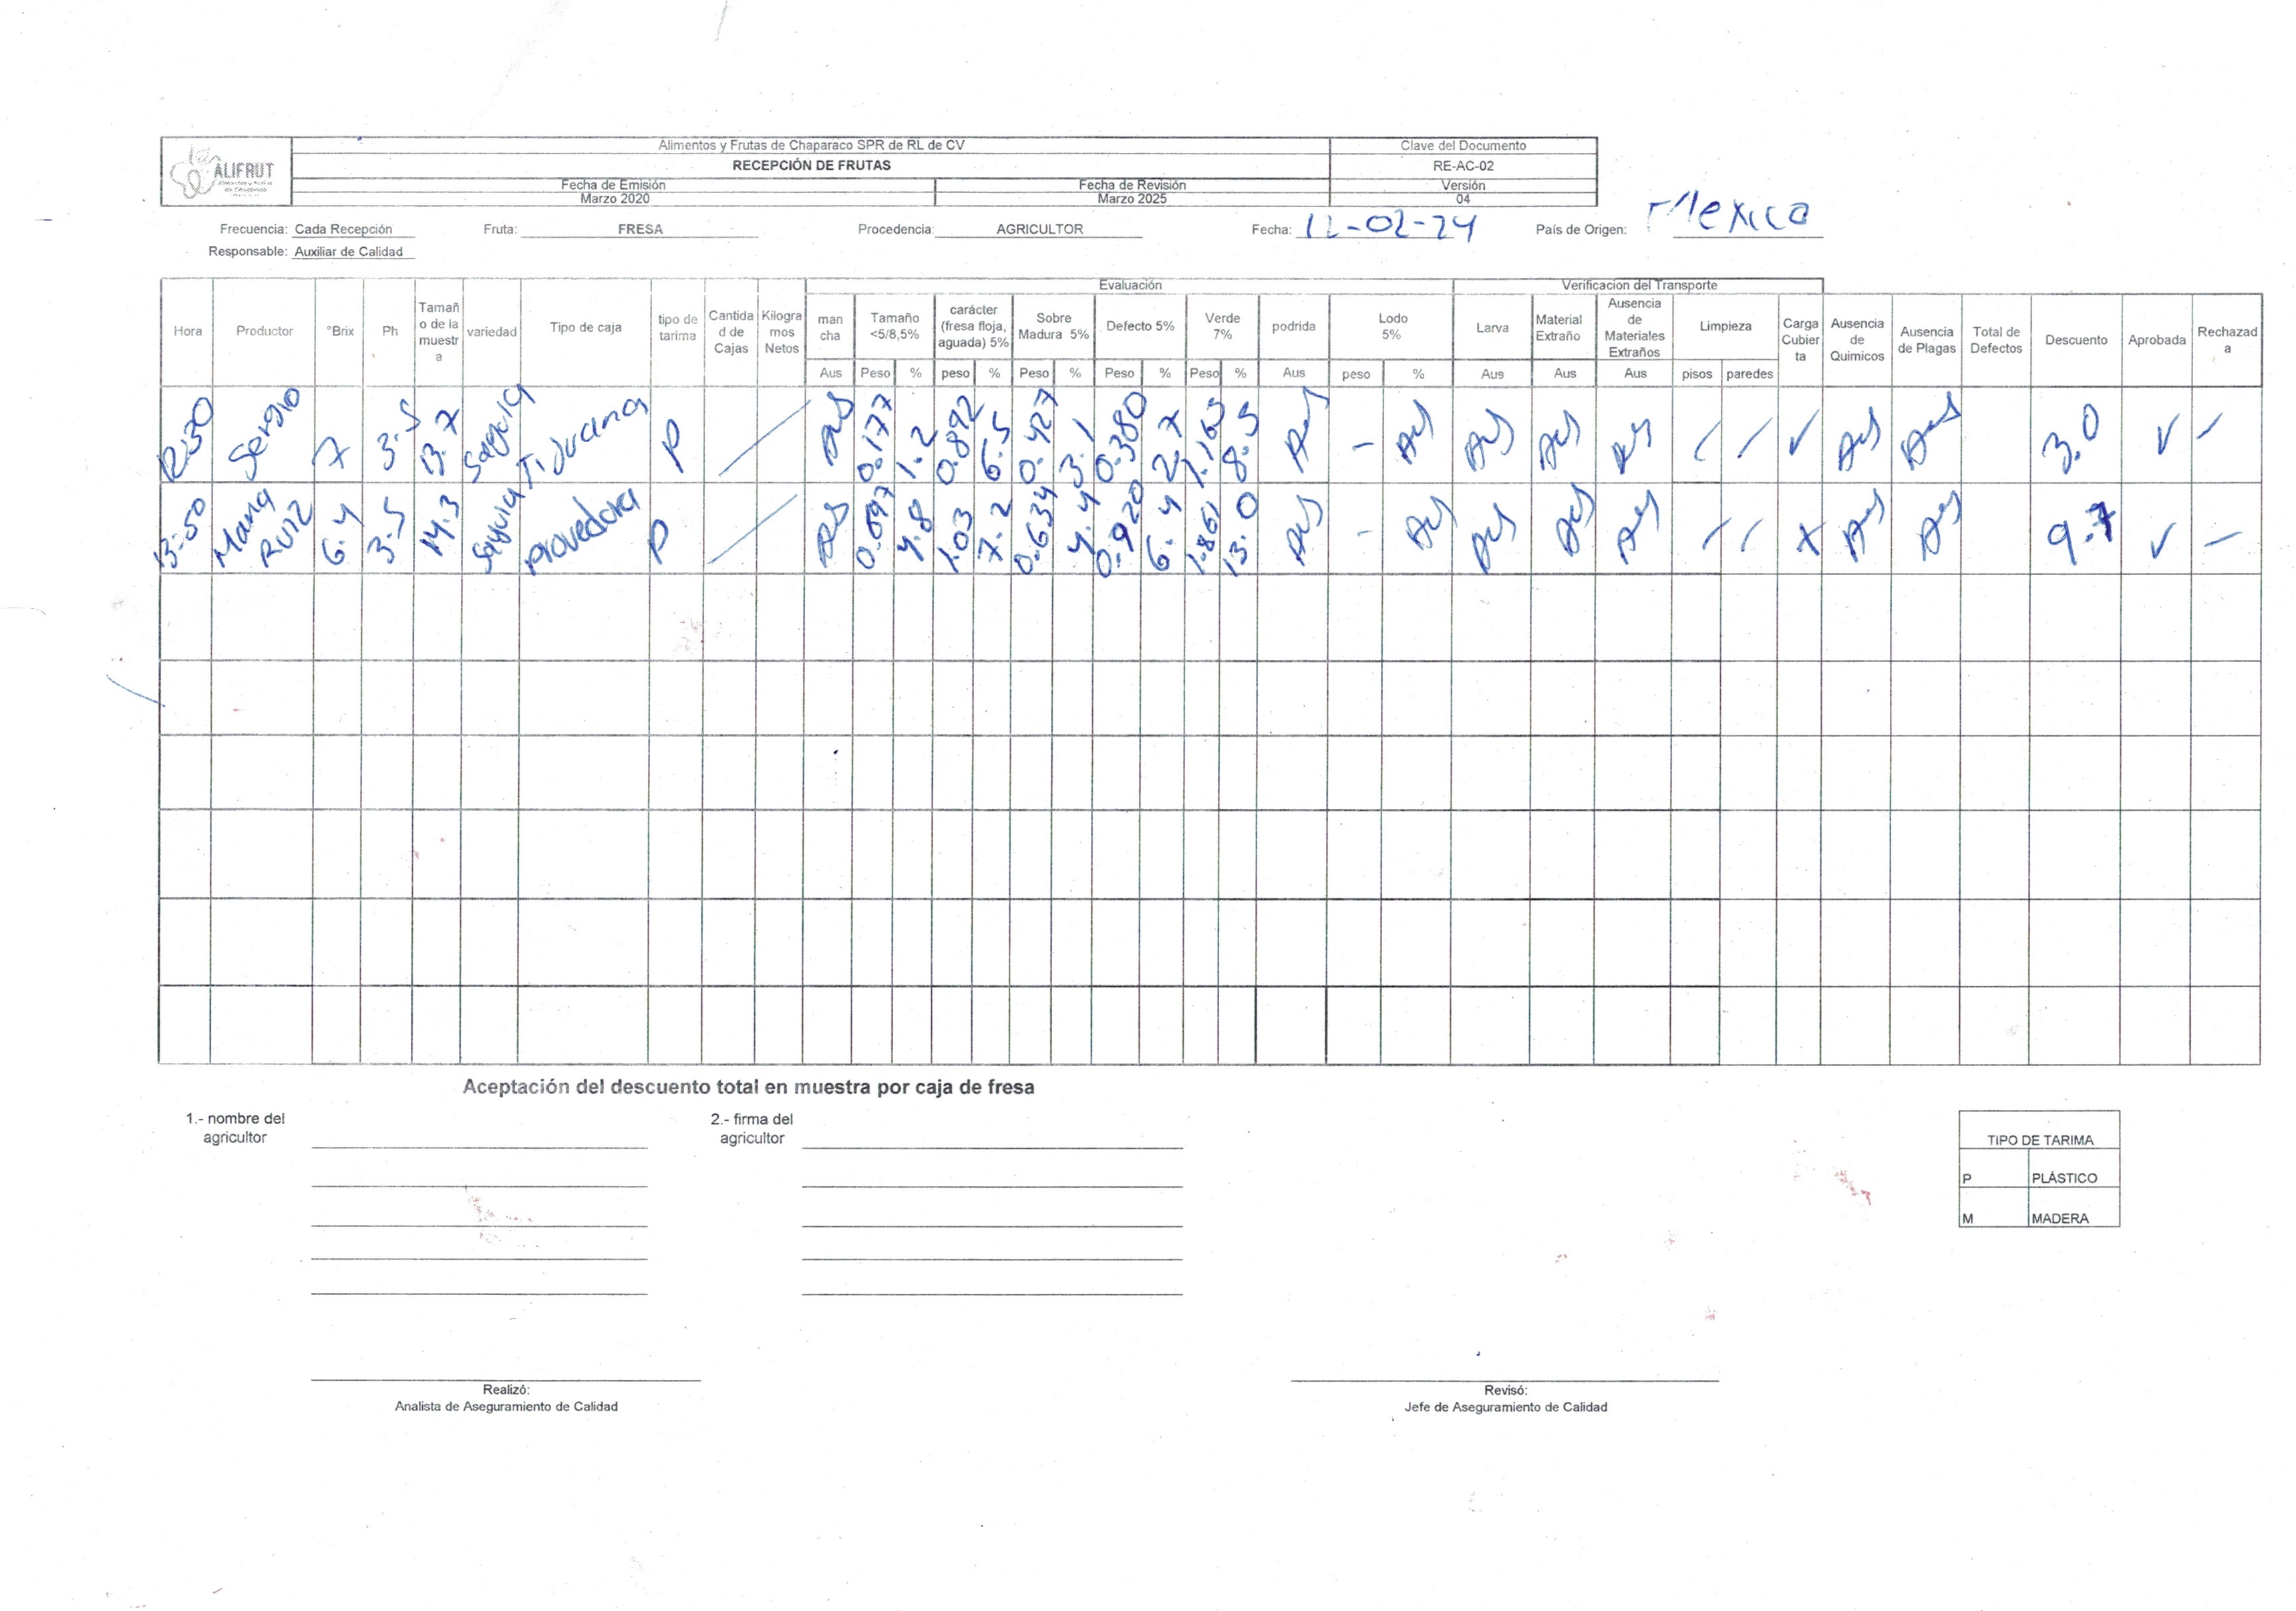 ALIFRUT
Alimentos y Frutas de Chaparaco SPR de RL de CV
Clave del Documento
RECEPCIÓN DE FRUTAS
RE-AC-02
Fecha de Emisión Fecha de Revisión Versión
Marzo 2020 Marzo 2025 04
Frecuencia: Cada Recepción Fruta: FRESA Procedencia: AGRICULTOR Fecha: 12-02-24 País de Origen: Mexico
Responsable: Auxiliar de Calidad
Evaluación Verificacion del Transporte
Hora Productor °Brix Ph Tamaño de la muestra variedad Tipo de caja tipo de tarima Cantidad de Cajas Kilogramos Netos mancha Tamaño <5/8,5% carácter (fresa floja, aguada) 5% Sobre Madura 5% Defecto 5% Verde 7% podrida Lodo 5% Larva Material Extraño Ausencia de Materiales Extraños Limpieza Carga Cubierta Ausencia de Quimicos Ausencia de Plagas Total de Defectos Descuento Aprobada Rechazada
Aus Peso % peso % Peso % Peso % Peso % Aus peso % Aus Aus Aus pisos paredes
12:30 Sergio 7 3.5 13.7 Sayula Tijuana P Aus 0.177 1.2 0.892 6.5 0.427 3.1 0.380 2.7 1.163 8.5 Aus - Aus Aus Aus Aus ✓ Aus Aus 3.0 ✓ -
13:50 Maria Ruiz 6.4 3.5 14.3 Sayula Provedora P Aus 0.697 4.8 1.03 7.2 0.634 4.4 0.920 6.4 1.861 13.0 Aus - Aus Aus Aus Aus x Aus Aus 9.7 ✓ -
Aceptación del descuento total en muestra por caja de fresa
1.- nombre del agricultor 2.- firma del agricultor
TIPO DE TARIMA
P PLÁSTICO
M MADERA
Realizó: Revisó:
Analista de Aseguramiento de Calidad Jefe de Aseguramiento de Calidad